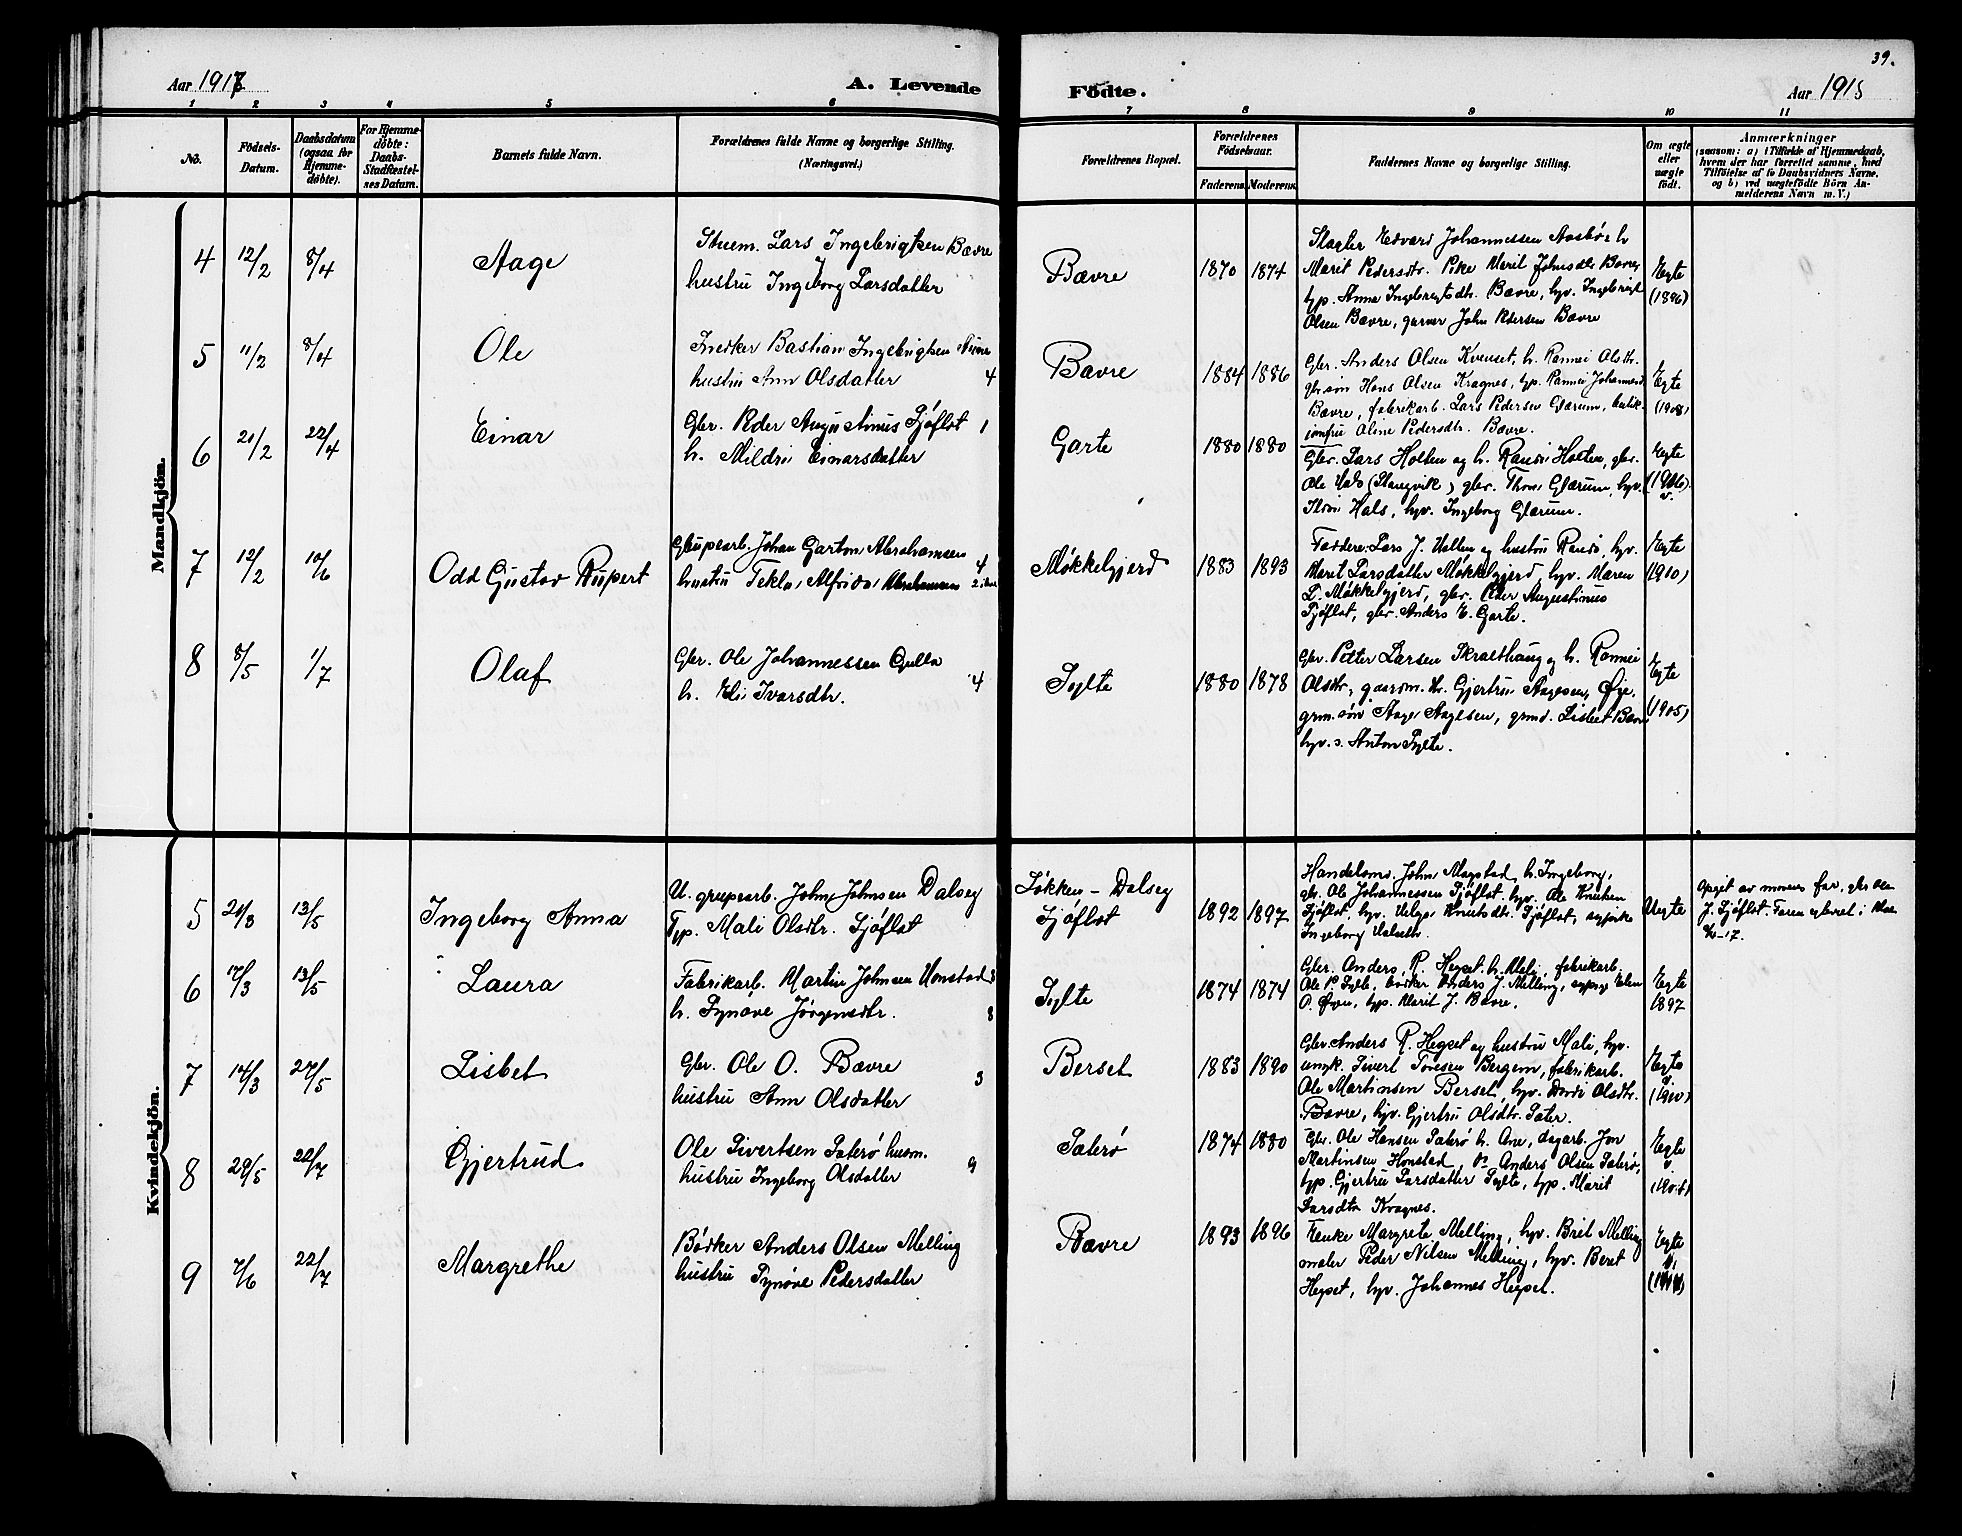 39.
Aar 1917
A. Levende
Födte.
Aar 1918
1 2 3 4 5 6 7 8 9 10 11
No.
Födsels-
Datum.
Daabsdatum
(ogsaa for
Hjemme-
döbte).
For Hjemme-
döbte:
Daabs-
Stadfæstel-
ses Datum.
Barnets fulde Navn.
Forældrenes fulde Navne og borgerlige Stilling.
(Næringsvei.)
Forældrenes Bopæl.
Forældrenes
Födselsaar.
Faderens. Moderens.
Faddernes Navne og borgerlige Stilling.
Om ægte
eller
uægte
födt.
Anmærkninger
(saasom: a) i Tilfælde af Hjemmedaab,
hvem der har forrettet samme, med
Tilföielse af to Daabsvidners Navne.
og b) ved uægtefödte Börn An-
melderens Navn m. V.)
Mandkjön.
4 12/2 8/4 Aage
Lars Ingebrigtsen Bævre
hustru Ingeborg Larsdatter
Bævre 1870 1874
Slagter Edvard Johannessen Aasbø h
Marit Pedersdtr. Pike Marit Johnsdtr Bævre
typ. Anna Ingebrigtsdtr. Bævre, hyv. Ingebrigt
Olsen Bævre, garver John Pedersen Bævre
Egte
(1896)
5 11/2 8/4 Ole
Snedker Bastian Ingebrigtsen
hustru Ann Olsdatter 4
Bævre 1884 1886
Gbr. Anders Olsen Kvenset, h. Rannei Olsdtr.
gbr.søn Hans Olsen Kragnes, typ. Rannei Johannesd
Bævre, fabrikarb. Lars Pedersen Glærum, butik-
jomfru Oline Pedersdtr. Bævre.
Egte
(1908)
6 21/2 22/4 Einar
Gbr. Peder Augustinus Sjøflot 1
h. Mildri Einarsdatter
Garte 1880 1880
Gbr. Lars Holten og h. Randi Holten, gbr.
Ole Hals (Stangvik) gbr. Thore Glærum, hyv.
Hals, hyv. Ingeborg Glærum.
Egte
(1906).
7 12/2 10/6 Odd Gustav Rupert
Grupearb. Johan Garton Abrahamsen 4
hustru Tekla Alfrida Abrahamsen
Møkkelgjerd 1883 1893
Faddere: Lars J. Hallen og hustru Randi, hyv.
Marit Larsdatter Møkkelgjerd, hyv. Maren
L. Møkkelgjerd, gbr. Peder Augustinus
Sjøflot, gbr. Anders E. Garte.
Egte
(1910)
8 8/5 1/7 Olaf
Gbr. Ole Johannessen Gulla
h. Eli Ivarsdtr. 4
Sylte 1880 1878
Gbr. Petter Larsen Skralthaug og h. Rannei
Olsdtr, gaardm. Gjertru Aagesen, Øye.
grm.søn Aage Aagesen, grmd. Lisbet Bævre
hyv. s. Anton Sylte.
Egte
(1905)
Kvindekjön.
5 21/3 13/5 Ingeborg Anna
U. grupearb. John Johnsen Dalseg
Typ. Mali Olsdtr. Sjøflot
Løkken - Dalseg
Sjøflot 1892 1897
Handelsmd. John Magstad, h. Ingeborg,
gbr. Ole Johannessen Sjøflot, hyv. Ole Knutsen
Sjøflot, hyv. Helga Knutsdtr. Sjøflot, sypike
Ingeborg
Uegte
Opgit av morens far, gbr Ole
J. Sjøflot. Faren
6 17/3 13/5 Laura
Fabrikarb. Martin Johnsen Honstad 8
h. Synøve Jørgensdtr. 8
Sylte 1874 1874
Gbr. Anders R. Hegset h. Mali, fabrikarb.
Ole P. Sylte, bødker Anders J. Melling, sypige Elen
O. Øyen, typ. Marit J. Bævre.
Egte
1897
7 14/3 27/5 Lisbet
Gbr. Ole O. Bævre
hustru Ann Olsdatter 3
Berset 1883 1890
Gbr. Anders R. Hegset og hustru Mali, hyv.
umyk. Sivert Toresen Bergem, fabrikarb.
Ole Martinsen Berset, hyv. Dordi Olsdtr.
Bævre, hjv. Gjertru Olsdtr. Sæter.
Egte
(1910)
8 29/5 22/7 Gjertrud
Ole Sivertsen Saterø husm.
hustru Ingeborg Olsdatter 9
Saterø 1874 1880
Gbr. Ole Hansen Saterø h. Ane, dagarb. Jon
Martinsen Honstad, Anders Olsen Saterø,
typ. Gjertru Larsdatter Sylte, typ. Marit
Larsdtr Kragnes.
Egte
9 7/6 22/7 Margrethe
Bødker Anders Olsen Melling
hustru Synøve Pedersdatter
Bævre 1893 1896
Enke Margrete Melling, hyv. Brit Melling
maler Peder Nilsen Melling, hyv. Beret
Hegset, hyv. Johannes Hegset.
Egte